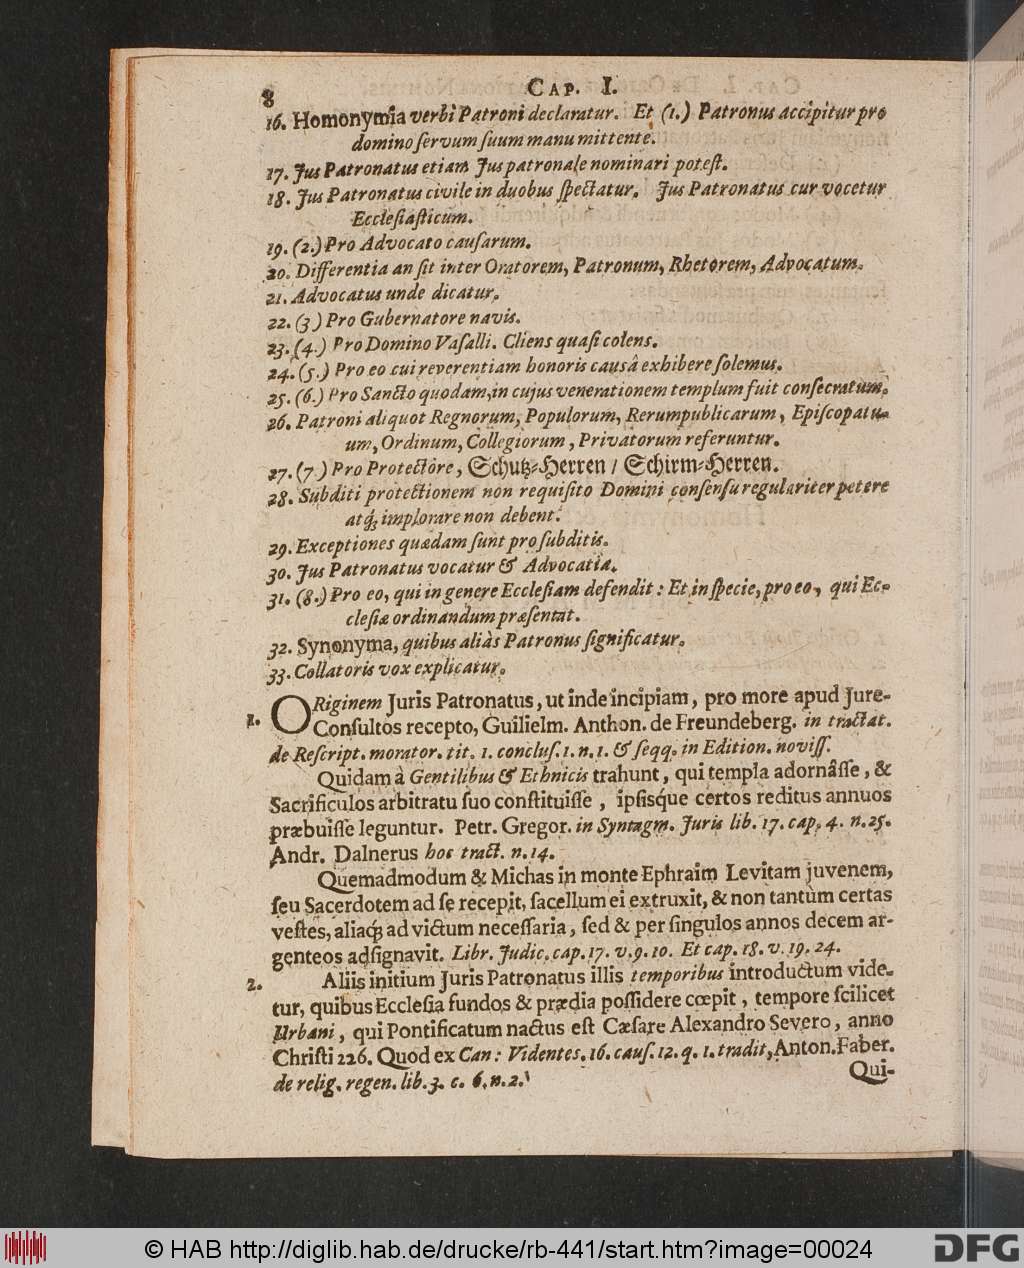 8 CAP. I.
16. Homonymia verbi Patroni declaratur. Et (1.) Patronus accipitur pro
domino ſervum ſuum manu mittente.
17. Jus Patronatus etiam Jus patronale nominari poteſt.
18. Jus Patronatus civile in duobus ſpectatur. Jus Patronatus cur vocetur
Eccleſiaſticum.
19. (2.) Pro Advocato cauſarum.
20. Differentia an ſit inter Oratorem, Patronum, Rhetorem, Advocatum.
21. Advocatus unde dicatur.
22. (3) Pro Gubernatore navis.
23. (4.) Pro Domino Vaſalli. Cliens quaſi colens.
24. (5.) Pro eo cui reverentiam honoris causâ exhibere ſolemus.
25. (6.) Pro Sancto quodam, in cujus venerationem templum fuit conſecratum.
26. Patroni aliquot Regnorum, Populorum, Rerumpublicarum, Epiſcopatu-
um, Ordinum, Collegiorum, Privatorum referuntur.
27. (7.) Pro Protectôre, Schutz-Herren / Schirm-Herren.
28. Subditi protectionem non requiſito Domini conſenſu regulariter petere
atq́; implorare non debent.
29. Exceptiones quædam ſunt pro ſubditis.
30. Jus Patronatus vocatur & Advocatia.
31. (8.) Pro eo, qui in genere Eccleſiam defendit: Et in ſpecie, pro eo, qui Ec-
cleſiæ ordinandum præſentat.
32. Synonyma, quibus aliàs Patronus ſignificatur.
33. Collatoris vox explicatur.
1. ORiginem Juris Patronatus, ut inde incipiam, pro more apud Jure-
Conſultos recepto, Guilielm. Anthon. de Freundeberg. in tractat.
de Reſcript. morator. tit. 1. concluſ. 1. n. 1. & ſeqq. in Edition. noviſſ.
Quidam à Gentilibus & Ethnicis trahunt, qui templa adornâſſe, &
Sacrificulos arbitratu ſuo conſtituiſſe, ipſisq́ue certos reditus annuos
præbuiſſe leguntur. Petr. Gregor. in Syntagm. Juris lib. 17. cap. 4. n. 25.
Andr. Dalnerus hoc tract. n. 14.
Quemadmodum & Michas in monte Ephraim Levitam juvenem,
ſeu Sacerdotem ad ſe recepit, ſacellum ei extruxit, & non tantùm certas
veſtes, aliaq́; ad victum neceſſaria, ſed & per ſingulos annos decem ar-
genteos adſignavit. Libr. Judic. cap. 17. v. 9. 10. Et cap. 18. v. 19. 24.
2. Aliis initium Juris Patronatus illis temporibus introductum vide-
tur, quibus Eccleſia fundos & prædia poſſidere cœpit, tempore ſcilicet
Urbani, qui Pontificatum nactus eſt Cæſare Alexandro Severo, anno
Chriſti 226. Quod ex Can: Videntes. 16. cauſ. 12. q. 1. tradit, Anton. Faber.
de relig. regen. lib. 3. c. 6. n. 2.
Qui-
© HAB http://diglib.hab.de/drucke/rb-441/start.htm?image=00024
DFG